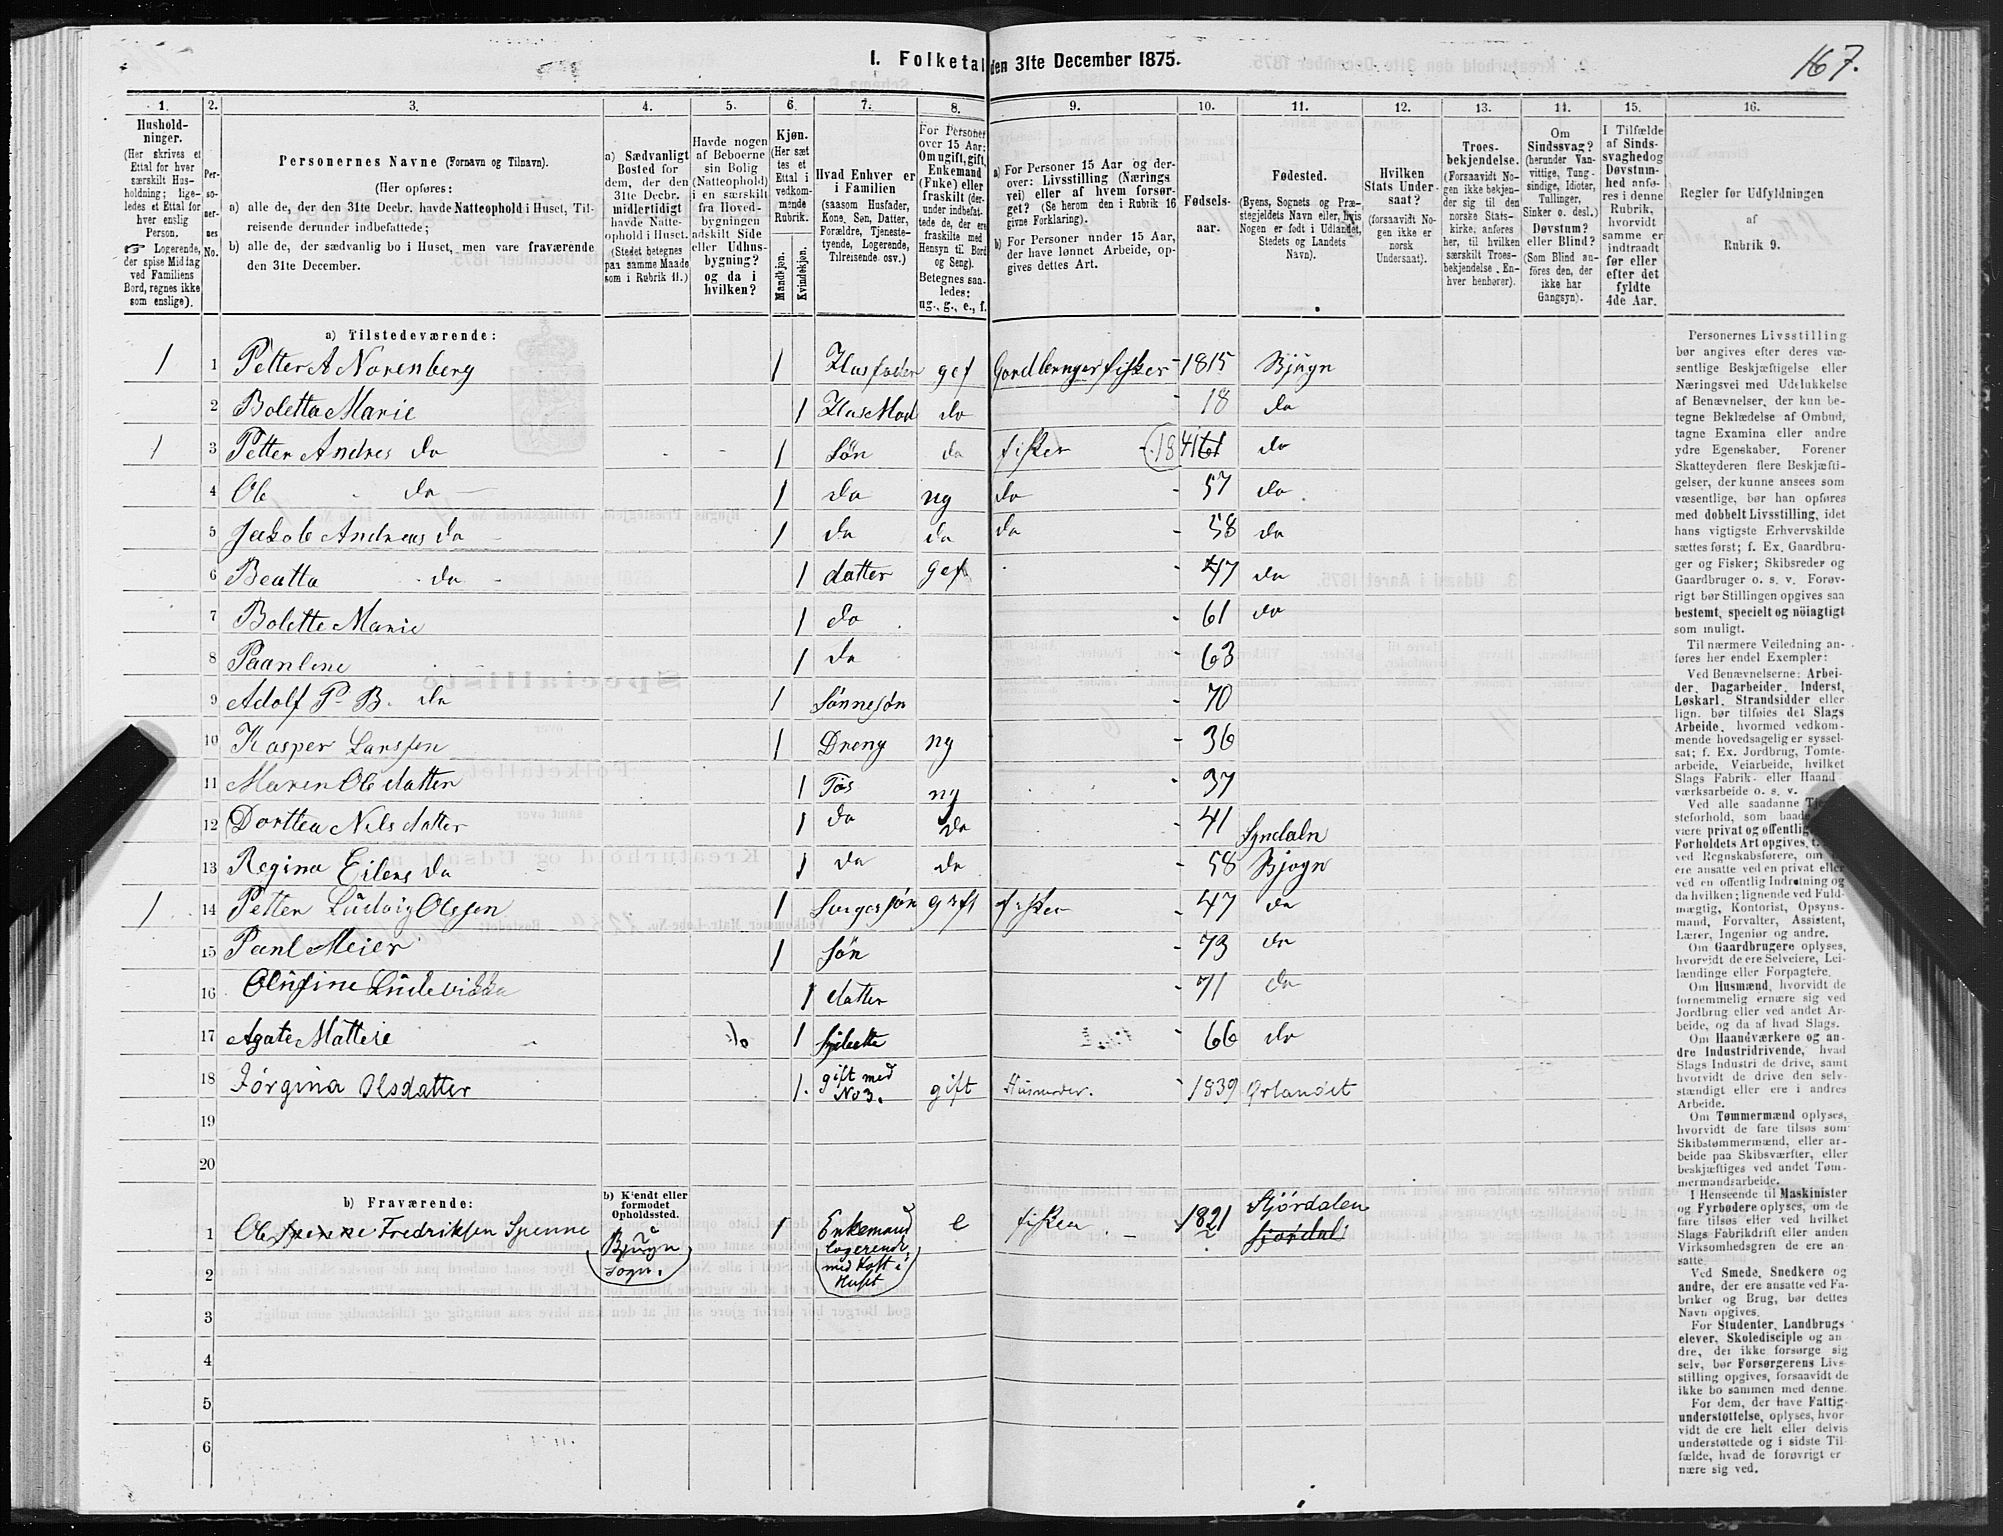 167.
1. Folketal den 31te December 1875.
1. 2. 3. 4. 5. 6. 7. 8. 9. 10. 11. 12. 13. 14. 15. 16.
Hushold-
ninger.
(Her skrives et
Ettal for hver
særskilt Hus-
holdning; lige-
ledes et Ettal for
hver enslig
Person.
☞ Logerende,
der spise Middag
ved Familiens
Bord, regnes ikke
som enslige).
Per-
so-
ner-
nes
No.
Personernes Navne (Fornavn og Tilnavn).
(Her opføres:
a) alle de, der den 31te Decbr. havde Natteophold i Huset, Til-
reisende derunder indbefattede;
b) alle de, der sædvanlig bo i Huset, men vare fraværende
den 31te December.
a) Sædvanligt
Bosted for
dem, der den
31te Decbr.
midlertidigt
havde Natte-
ophold i Huset.
(Stedet betegnes
paa samme Maade
som i Rubrik 11.)
Havde nogen
af Beboerne
sin Bolig
(Natteophold)
i en særskilt
fra Hoved-
bygningen
adskilt Side
eller Udhus-
bygning?
og da i
hvilken?
Kjøn.
(Her sæt
tes et
Ettal i
vedkom-
mende
Rubrik.
Mandkjøn.
Kvindekjøn.
Hvad Enhver er
i Familien
(saasom Husfader,
Kone, Søn, Datter,
Forældre, Tjeneste-
tyende, Logerende,
Tilreisende osv.)
For Personer
over 15 Aar:
Om ugift, gift,
Enkemand
(Enke) eller
fraskilt (der-
under indbefat-
tede de, der ere
fraskilte med
Hensyn til Bord
og Seng).
Betegnes saa-
ledes:
ug., g., e., f.
a) For Personer 15 Aar og der-
over: Livsstilling (Nærings
vei) eller af hvem forsør-
get? (Se herom den i Rubrik 16
givne Forklaring).
b) For Personer under 15 Aar,
der have lønnet Arbeide, op-
gives dettes Art.
Fødsels-
aar.
Fødested.
(Byens, Sognets og Præ-
stegjeldets Navn eller, hvis
Nogen er født i Udlandet,
Stedets og Landets
Navn).
Hvilken
Stats Under-
saat?
(forsaavidt No-
gen ikke er
norsk
Undersaat).
Troes-
bekjendelse.
(Forsaavidt No-
gen ikke bekjen-
der sig til den
norske Stats-
kirke, anføres
her, til hvilken
særskilt Troes-
bekjendelse, En-
hver henhører).
Om
Sindssvag?
(herunder Van-
vittige, Tung-
sindige, Idioter,
Tullinger,
Sinker o. desl.)
Døvstum?
eller Blind?
(Som Blind an-
føres den, der
ikke har
Gangsyn).
I Tilfælde
af Sinds-
svaghed og
Døvstum-
hed anfø-
res i denne
Rubrik,
hvorvidt
samme er
indtraadt
før eller
efter det
fyldte
4de Aar.
Regler for Udfyldningen
af
Rubrik 9.
a) Tilstedeværende:
1 1 Petter A Norenberg 1 Husfader gef Gardbruger fisker - 1815 Bjugn
2 Boletta Marie 1 Hus Mod do - 18 do
1 3 Petter Andres do 1 Søn do fisker 1841 61 do
4 Ole do 1 do ug do - 57 do
5 Jakob Andreas do 1 do do do - 58 do
6 Beatta do 1 datter gef - 47 do
7 Bolette Marie 1 do - 61 do
8 Paanline 1 do - 63
9 Adolf P. B. do 1 Sønnesøn - 70
10 Kasper Larssen 1 Dreng ug - 36
11 Maren Olsdatter 1 Tøs ug - 37
12 Dorttea Nilsdatter 1 do do - 41
13 Regina Eilens da 1 do do - 58 Bjogn
1 14 Petter Ludvig Olssen 1 gift fisker - 47 do
15 Paul Meier 1 Søn - 73 do
16 Olufine Ludevikka 1 datter - 71 do
17 Agate Mattea 1 - 66 do
18 Jørgina Olsdatter 1. gift med No 3. gift - 1839 Ørlandet
19
20
b) Fraværende:
b) Kjendt eller
formodet
Opholdssted.
1 Ole Fredriksen Spenne Bjugn 1 Enkemand e fisker - 1821 Stjørdalen
Sogn. logerende Stjørdal
2 med Kost i
Huset
3
4
5
6
Personernes Livsstilling
bør angives efter deres væ-
sentlige Beskjæftigelse eller
Næringsvei med Udelukkelse
af Benævnelser, der kun be-
tegne Beklædelse af Ombud,
tagne Examina eller andre
ydre Egenskaber. Forener
Skatteyderen flere Beskjæfti-
gelser, der kunne ansees som
væsentlige, bør han opføres
med dobbelt Livsstilling, idet
hans vigtigste Erhvervskilde
sættes først; f. Ex. Gaardbru-
ger og Fisker; Skibsreder og
Gaardbruger o. s. v. Forøv-
rigt bør Stillingen opgives saa
bestemt, specielt og nøiagtigt
som muligt.
Til nærmere Veiledning an-
føres her endel Exempler:
Ved Benævnelserne: Arbei-
der, Dagarbeider, Inderst,
Løskarl, Strandsidder eller
lign. bør tilføies det Slags
Arbeide, hvormed vedkom-
mende hovedsagelig er syssel-
sat; f. Ex. Jordbrug, Tomte-
arbeide, Veiarbeide, hvilket
Slags Fabrik- eller Haand
værksarbeide o. s. v.
Ved alle saadanne
steforhold, som
være privat og offentlig
Forholdets Art opgives,
ved Regnskabsførere, om
ere ansatte ved en privat eller
ved en offentlig Indretning og
da hvilken; lignende ved Fuld-
mægtig, Kontorist, Opsyns-
mand, Forvalter, Assistent,
Lærer, Ingeniør og andre.
Om Gaardbrugere oplyses,
hvorvidt de ere Selveiere, Lei-
lændinge eller Forpagtere.
Om Husmænd, hvorvidt de
fornemmelig ernære sig ved
Jordbrug eller ved andet Ar-
beide, og da af hvad Slags.
Om Haandværkere og an-
dre Industridrivende, hvad
Slags Industri de drive, samt
hvorvidt de drive den selv-
stændigt eller ere i andres
Arbeide.
Om Tømmermænd oplyses,
hvorvidt de fare tilsøs som
Skibstømmermænd, eller ar-
beide paa Skibsværfter, eller
beskjæftiges ved andet Tøm-
mermandsarbeide.
I Henseende til Maskinister
og Fyrbødere oplyses, om de
fare tilsøs eller ved hvilket
Slags Fabrikdrift eller anden
Virksomhedsgren de ere an-
satte.
Ved Smede, Snedkere og
andre, der ere ansatte ved Fa-
briker og Brug, bør dettes
Navn opgives.
For Studenter, Landbrugs
elever, Skoledisciple og an
dre, der ikke forsørge sig
selv, bør Forsørgerens Livs-
stilling opgives, forsaavidt de
ikke bo sammen med denne.
For dem, der have Fattig-
understøttelse, oplyses, hvor
vidt de ere helt eller delvis
understøttede og i sidste Til-
fælde, hvad de forøvrigt er
nære sig ved.